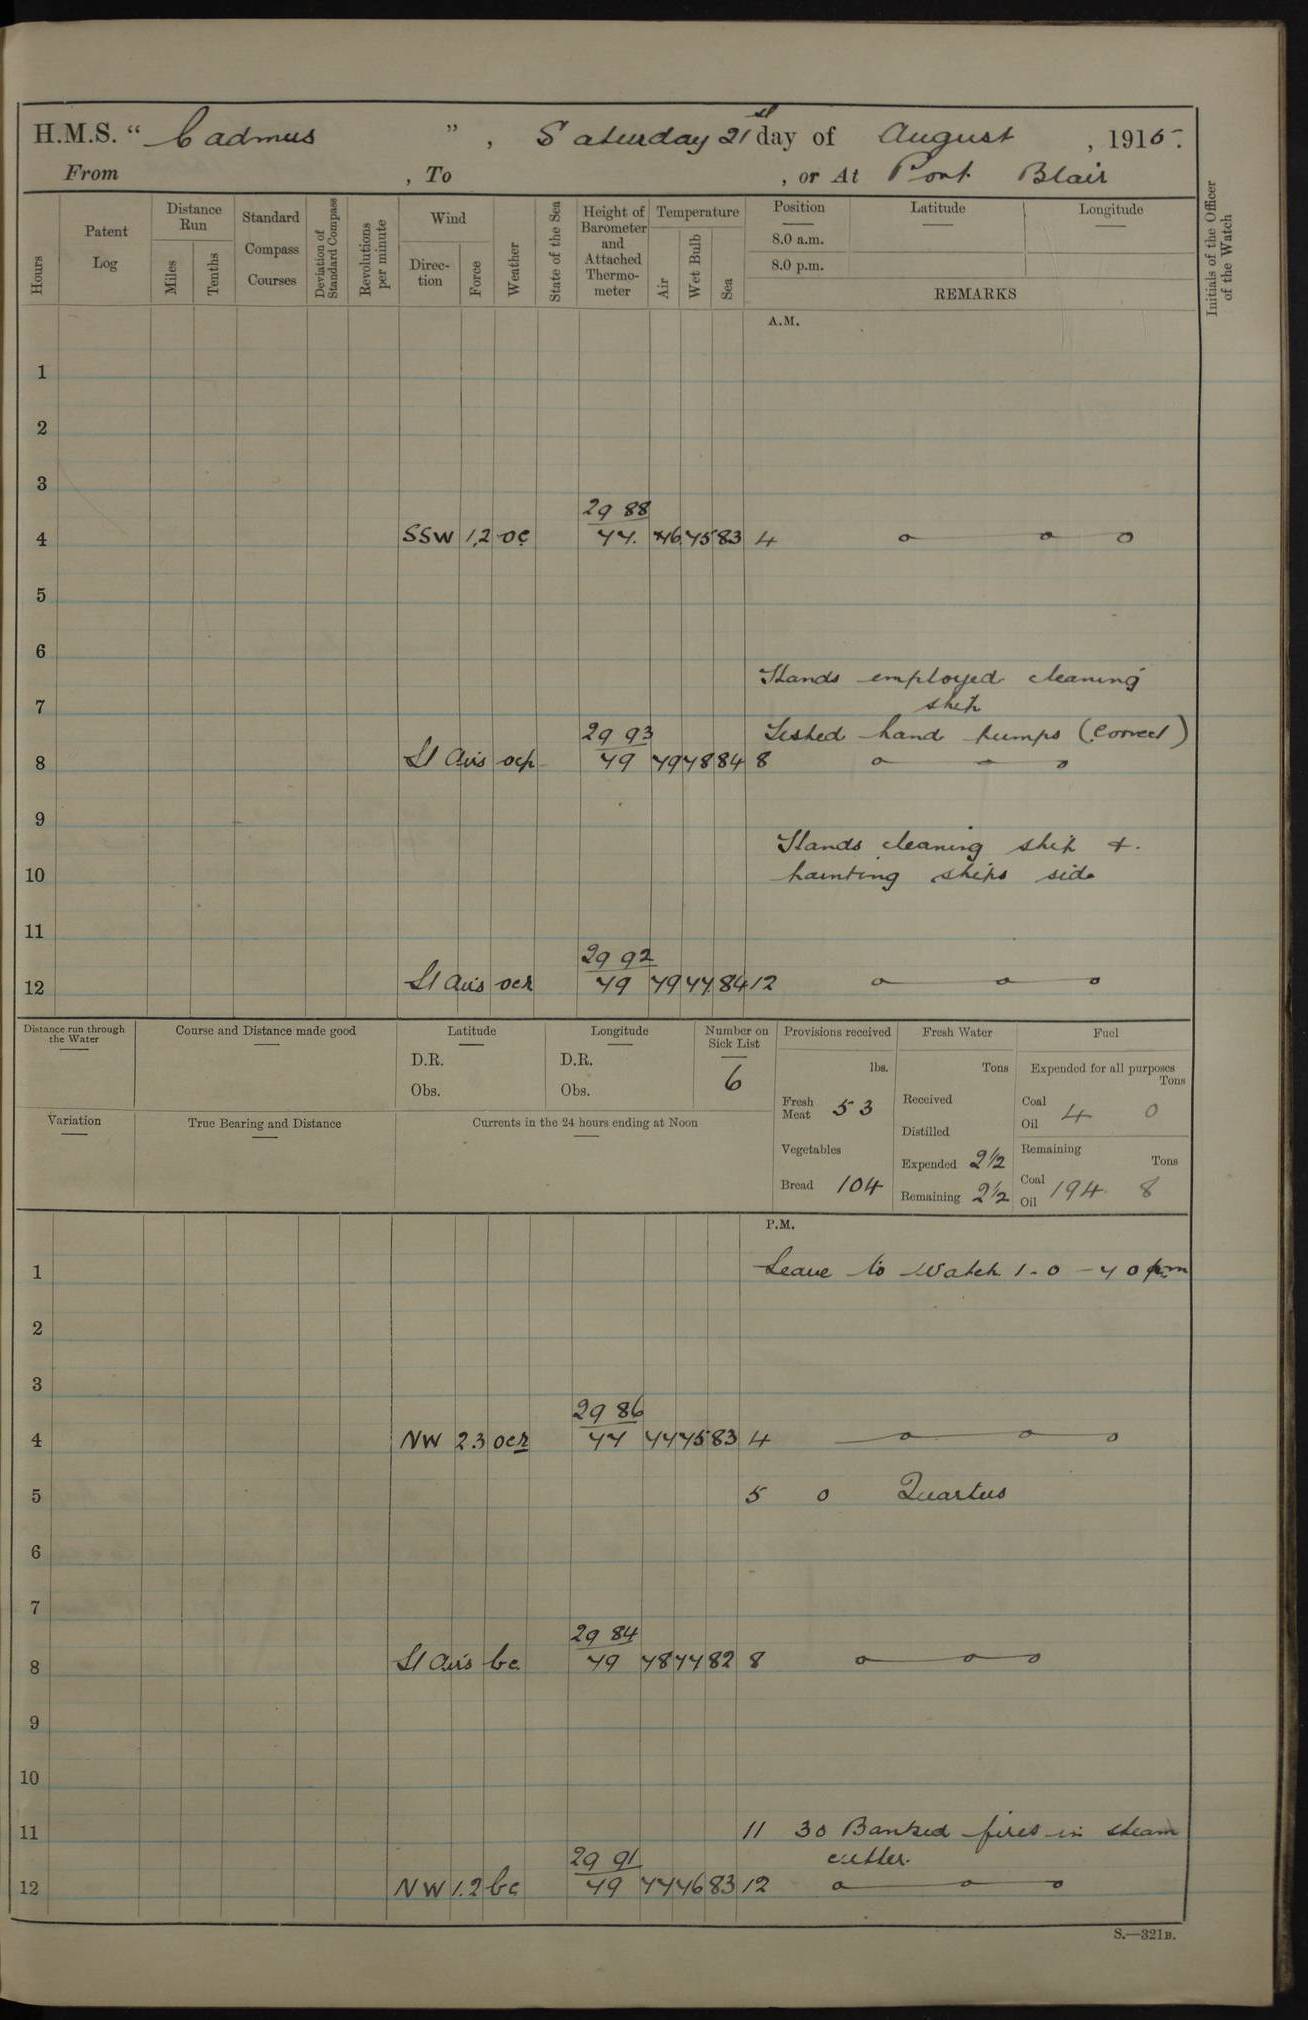 H.M.S. “ Cadmus ” , Saturday 21st day of August , 1915.
From , To , or At Port Blair
Hours
Patent Log
Distance Run
Miles
Tenths
Standard Compass Courses
Deviation of Standard Compass
Revolutions per minute
Wind
Direction
Force
Weather
State of the Sea
Height of Barometer and Attached Thermometer
Temperature
Air
Wet Bulb
Sea
Position Latitude Longitude
8.0 a.m.
8.0 p.m.
REMARKS
Initials of the Officer of the Watch
A.M.
1
2
3
29 88
4 SSW 1,2 oc 77 76 75 83 4
5
6
Hands employed cleaning
7 ship
29 93 Tested hand pumps (Correct)
8 Lt Airs ocp 79 79 78 84 8
9
Hands cleaning ship &
10 painting ships side
11
29 92
12 Lt Airs ocr 79 79 77 84 12
Distance run through the Water
Course and Distance made good
Latitude
D.R.
Obs.
Longitude
D.R.
Obs.
Number on Sick List
6
Provisions received
lbs.
Fresh Meat 53
Vegetables
Bread 104
Fresh Water
Tons
Received
Distilled
Expended 2½
Remaining 2½
Fuel
Expended for all purposes
Tons
Coal
Oil 4 0
Remaining
Tons
Coal
Oil 194 8
Variation
True Bearing and Distance
Currents in the 24 hours ending at Noon
P.M.
1 Leave to Watch 1-0 – 7 0 pm
2
3
29 86
4 NW 2.3 ocr 77 77 75 83 4
5 5 0 Quarters
6
7
29 84
8 Lt Airs bc 79 78 77 82 8
9
10
11 11 30 Banked fires in steam
29 91 cutter.
12 NW 1.2 bc 79 77 76 83 12
S.—321B.